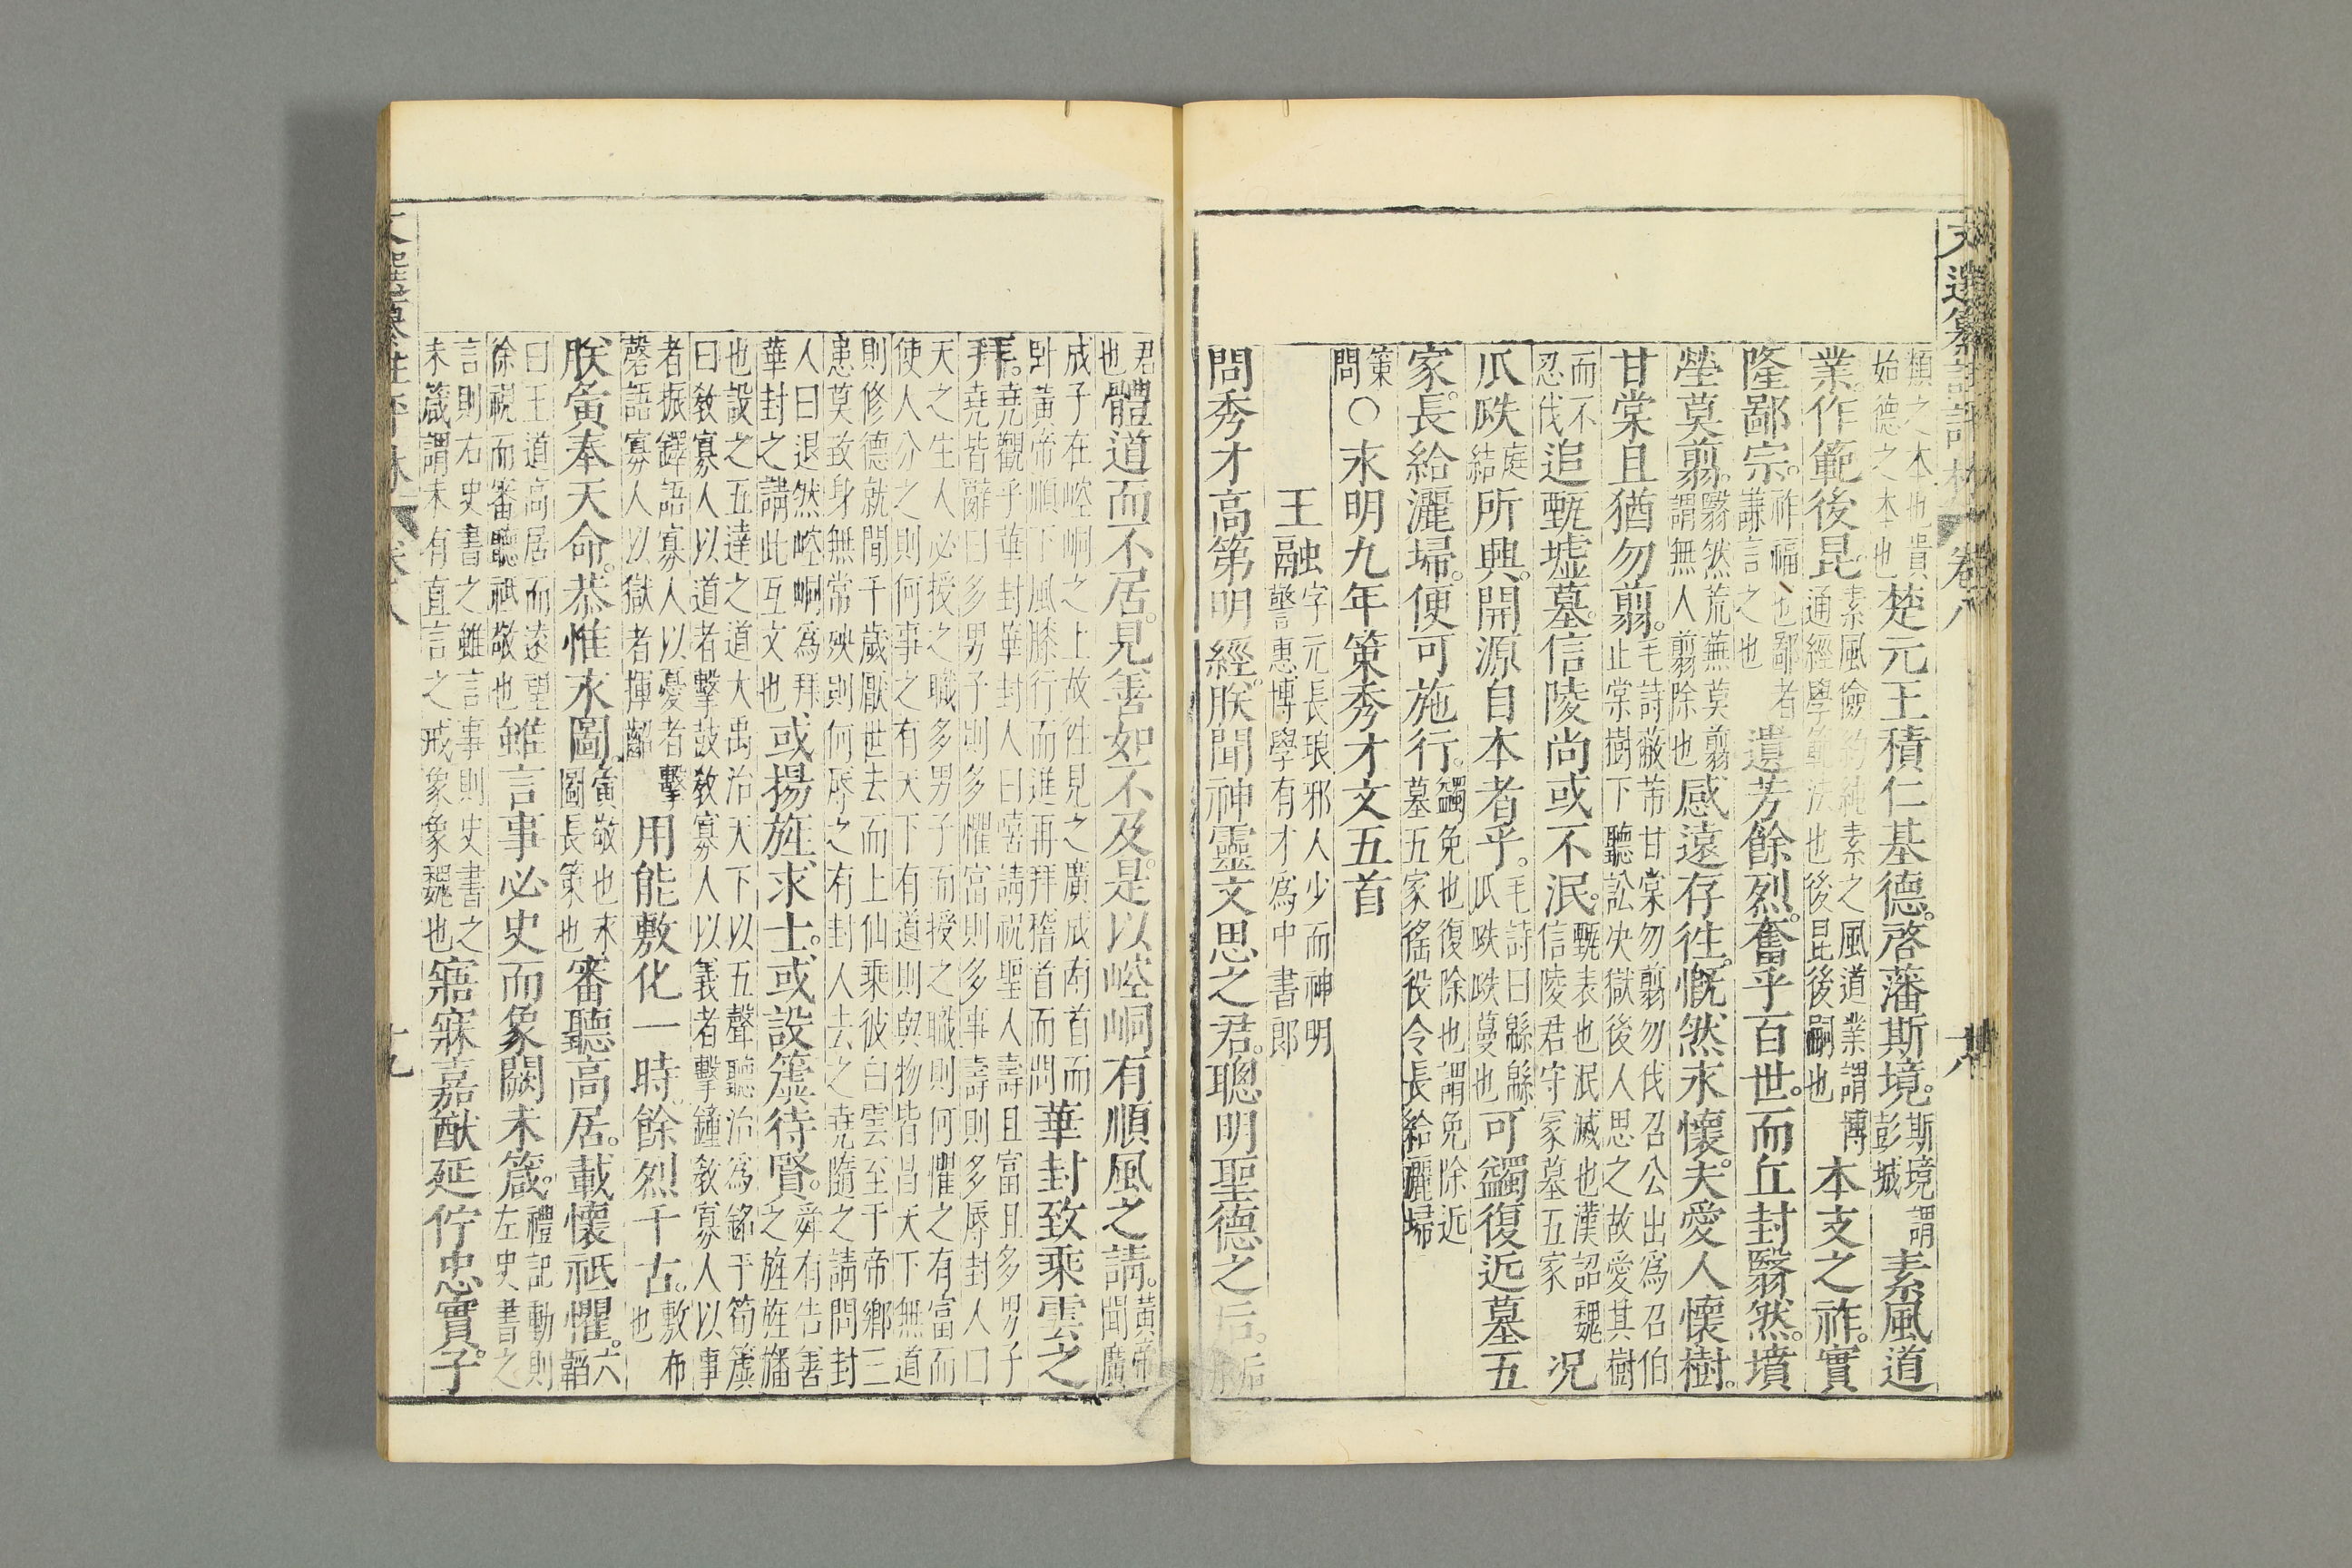 文選纂註評林 卷八 十八
類之本也貴始德之本也楚元王積仁基德。啓藩斯境。斯境謂彭城素風道
業。作範後昆。素風儉約純素之風道業謂博通經學範法也後昆後嗣也本支之祚。實
隆鄙宗。祚福也鄙者謙言之也遺芳餘烈。奮乎百世。而丘封翳然。墳
塋莫翦。翳然荒蕪莫翦謂無人翦除也感遠存徃。慨然永懷。夫愛人懷樹。
甘棠且猶勿翦。毛詩蔽芾甘棠勿翦勿伐召公出為召伯止棠樹下聽訟决獄後人思之故愛其樹
而不忍伐追甄墟墓。信陵尚或不泯。甄表也泯滅也漢詔魏信陵君守冢墓五家况
瓜瓞庭結所興。開源自本者乎。毛詩曰緜緜瓜瓞瓞蔓也可蠲復近墓五
家。長給灑埽。便可施行。蠲免也復除也謂免除近墓五家徭役令長給灑埽
策問○永明九年策秀才文五首
王融字元長琅邪人少而神明警惠博學有才為中書郎
問秀才高第明經。朕聞神靈文思之君。聰明聖德之后。后
君也體道而不居。見善如不及。是以崆峒有順風之請。黃帝聞廣
成子在崆峒之上故徃見之廣成南首而卧黃帝順下風膝行而進再拜稽首而問華封致乘雲之
拜。堯觀乎華封華封人曰嘻請祝聖人壽且富且多男子堯皆辭曰多男子則多懼富則多事壽則多辱封人曰
天之生人必授之職多男子而授之職則何懼之有富而使人分之則何事之有天下有道則與物皆昌天下無道
則修德就閒千歲厭世去而上仙乘彼白雲至于帝鄉三患莫致身無常殃則何辱之有封人去之堯隨之請問封
人曰退然崆峒為拜華封之請此互文也或揚旌求士。或設簴待賢。舜有告善之旌旌旛
也設之五達之道大禹治天下以五聲聽治為銘于筍簴曰敎寡人以道者擊鼓敎寡人以義者擊鐘敎寡人以事
者振鐸語寡人以憂者擊磬語寡人以獄者揮鞀用能敷化一時。餘烈千古。敷布也
朕夤奉天命。恭惟永圖。夤敬也永圖長策也審聽高居。載懷祗懼。六韜
曰王道高居而遠望徐視而審聽祗敬也雖言事必史。而象闕未箴。禮記動則左史書之
言則右史書之雖言事則史書之未箴謂未有直言之戒象象魏也寤寐嘉猷延佇忠實。子
文選纂註評林 卷八 十九